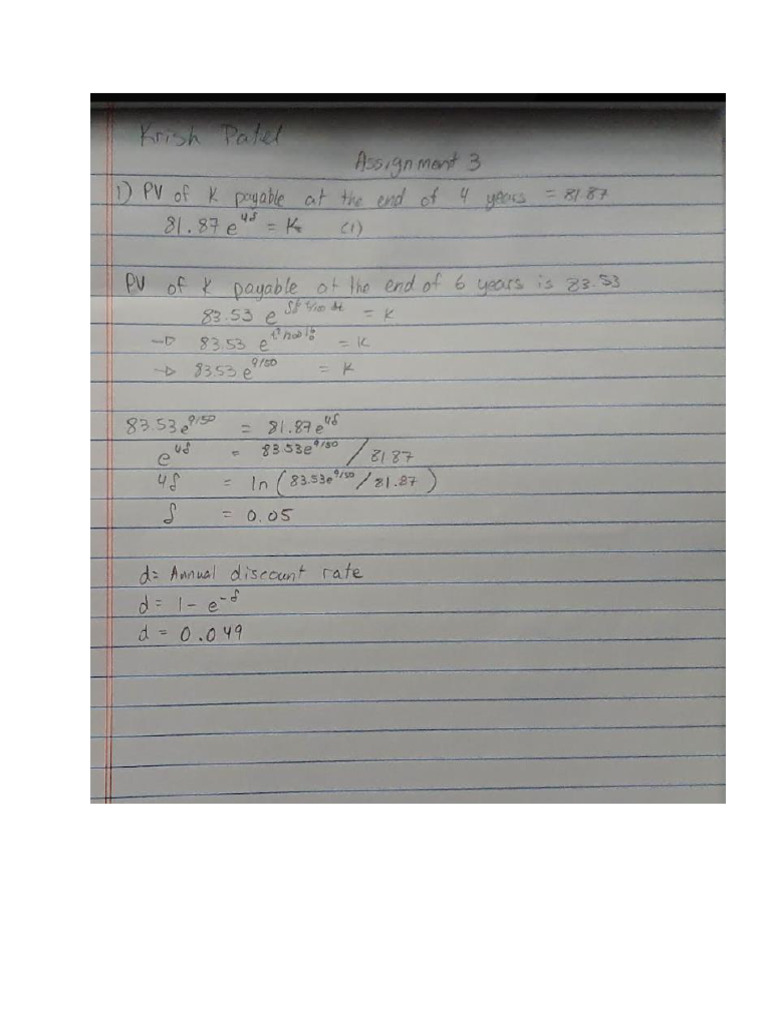 Krish Patel
Assignment 3
1) PV of K payable at the end of 4 years = 81.87
81.87 e^4δ = K (1)
PV of K payable at the end of 6 years is 83.53
83.53 e = K
→ 83.53 e = K
→ 83.53 e^9/50 = K
83.53 e^9/50 = 81.87 e^4δ
e^4δ = 83.53e^9/50 / 81.87
4δ = ln (83.53e^9/50 / 81.87)
δ = 0.05
d = Annual discount rate
d = 1 - e^-δ
d = 0.049